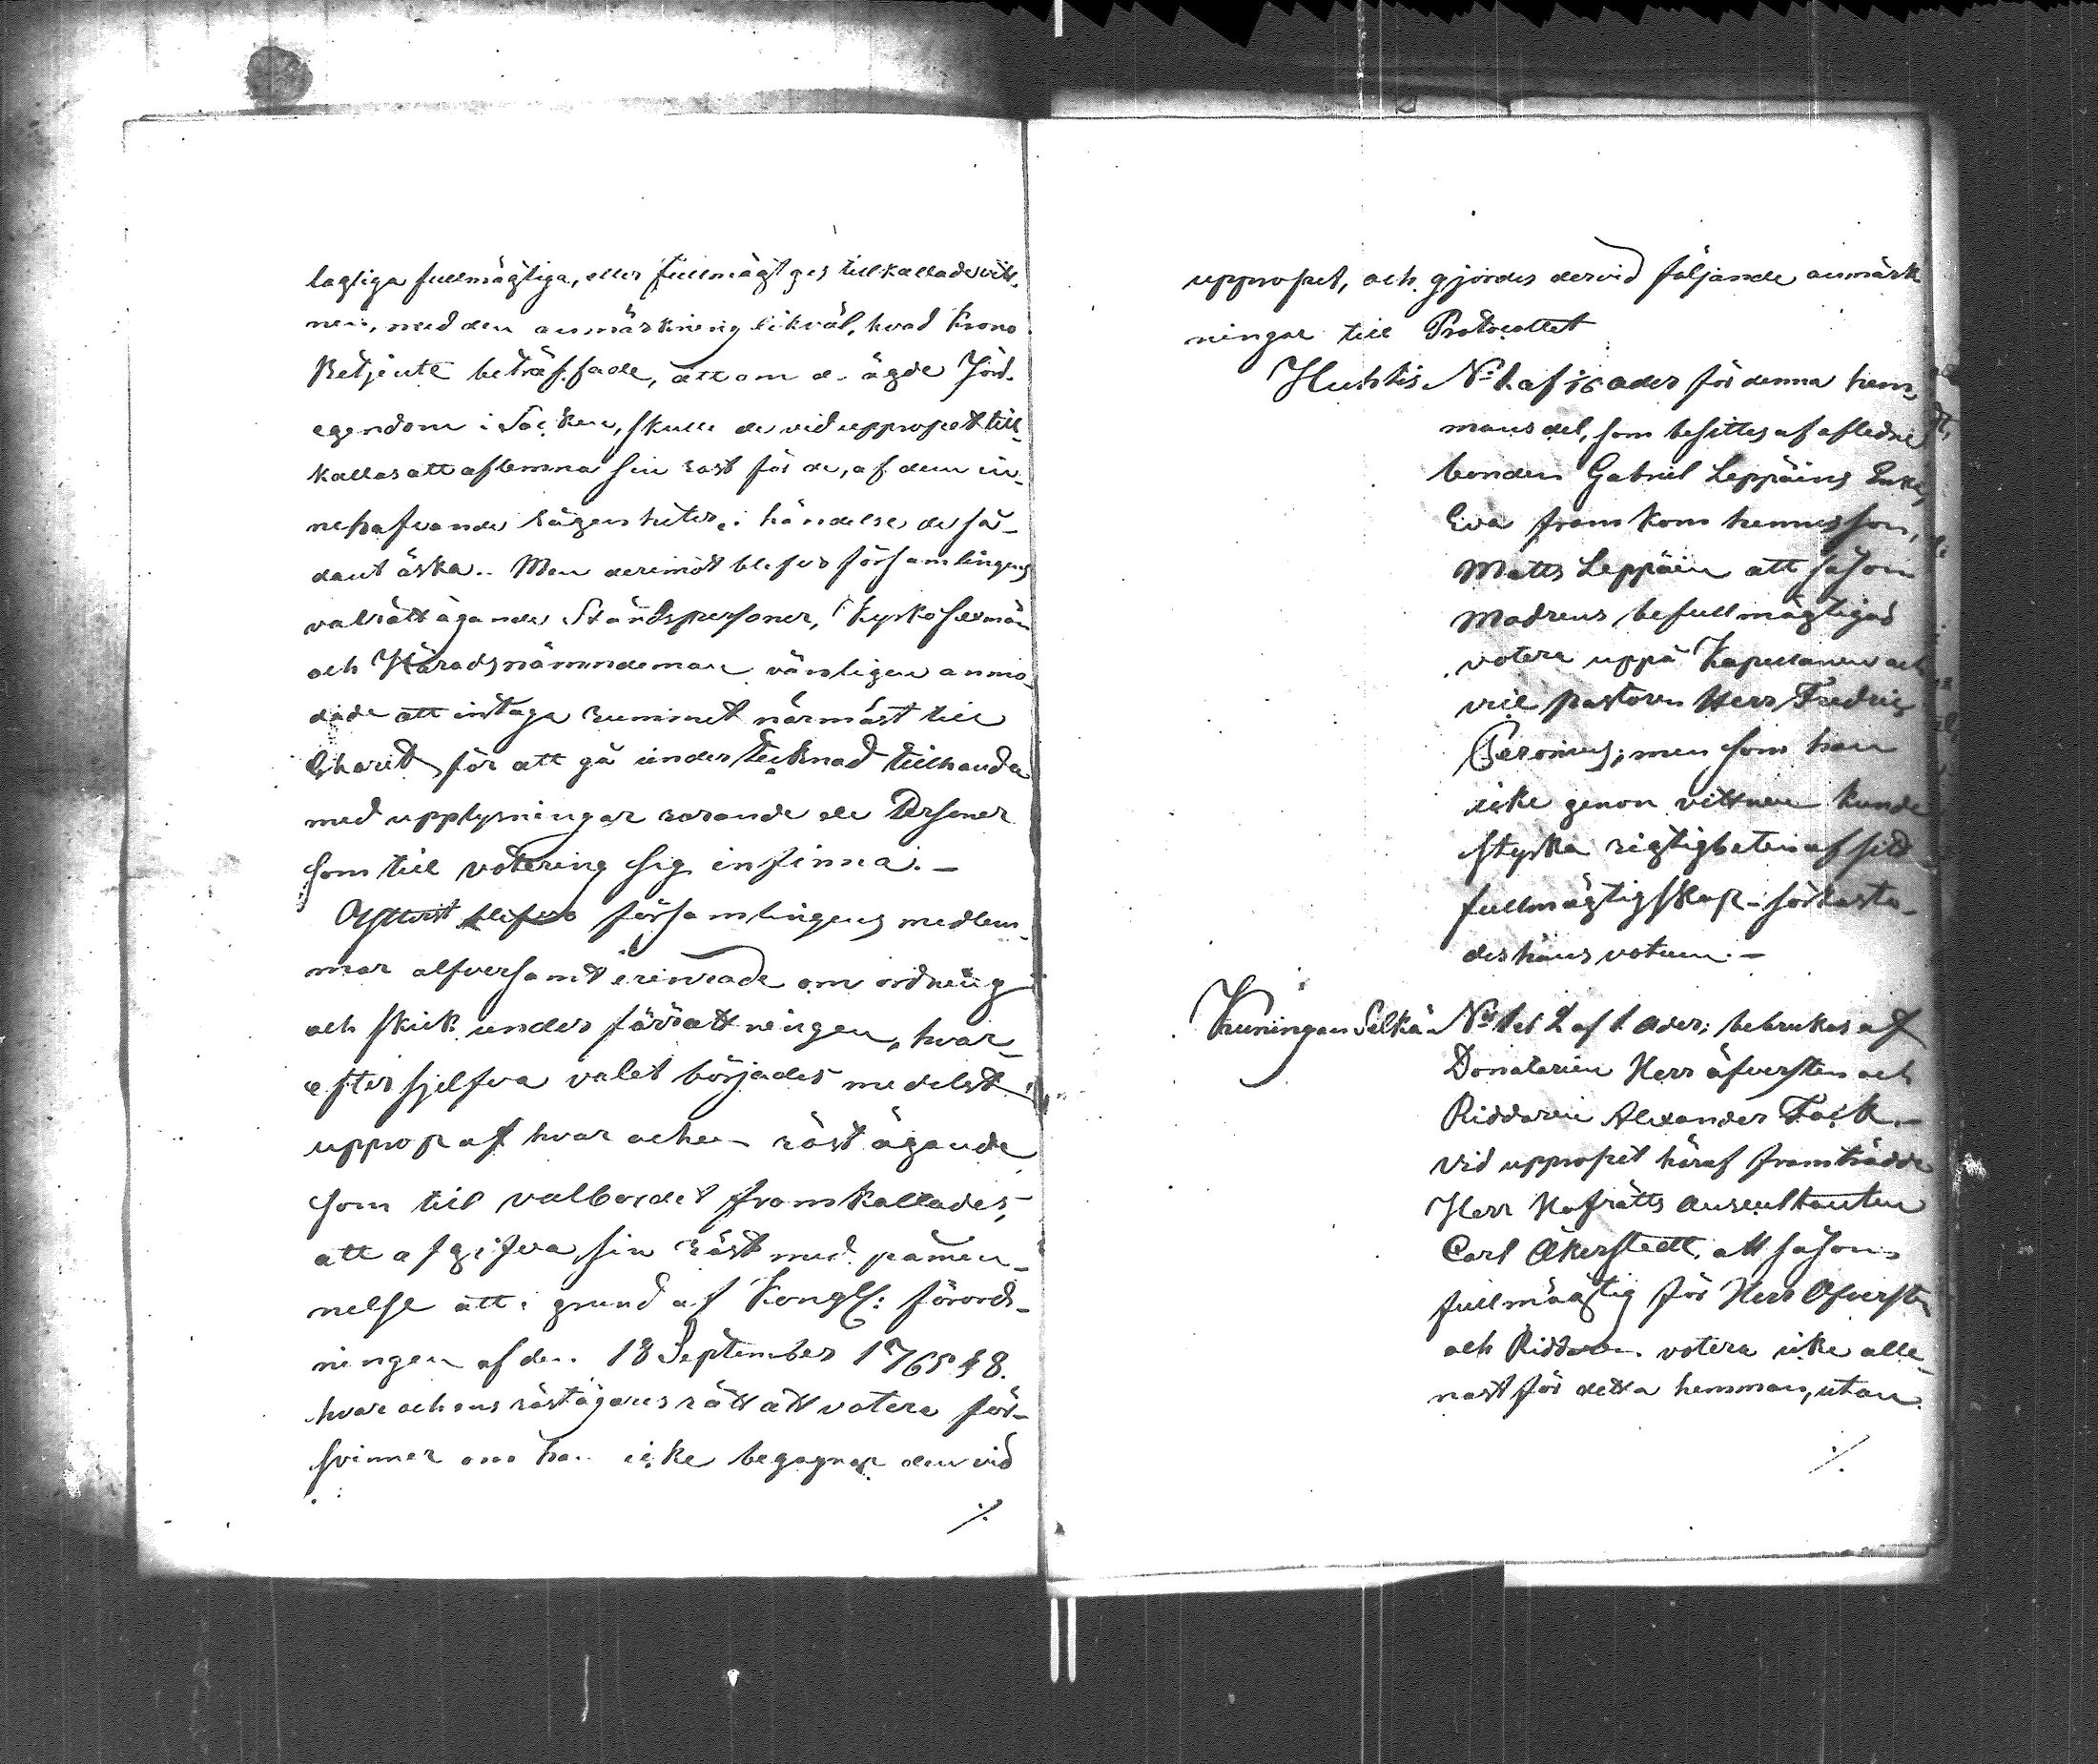 lagliga fullmägtiga, eller fullmägtiges tillkallade vitt-
nen, med den anmärkning likväl, hvad Krono
Betjente beträffade, att om de ägde Jord-
egendom i Socken, skulle de vid uppropet till-
kallas att aflemna sin röst för de, af dem in-
nehafvande lägenheter, i händelse de så-
dant äska. Men deremot blefvo församlingens
valrätt ägande Ståndspersoner, Kyrko Sexmän
och Häradsnämndeman vänligen anmo-
dade att intaga rummet närmast till
för att gå undertecknad tillhanda
med upplysningar rörande de Personer
som till votering sig infinna. —
Ytterst blefvo församlingens medlem-
mar alfversamt erinrade om ordning
och skick under förrättningen, hvar-
efter sjelfva valet börjades medelst
upprop af hvar och en röst ägande
som till valbordet framkallades,
att afgifva sin röst med påmin-
nelse att i grund af Kongl: förord-
ningen af den 18 September 1765 § 8.
hvar och ens röstägares rätt att votera för-
svinner om han icke begagnar den vid
./.
uppropet, och gjordes dervid följande anmärk
ningar till Protocollet
Huhtis No 1 af 16 ader för denna hem-
mans del, som besittes af afledne
bonden Gabriel Leppäins Enka,
Eva framkom hennes son,
Matts Leppäin att såsom
Modrens befullmägtigad
votera uppå Kapellanen och
vice pastoren Herr Fredric
Peronius; men som han
icke genom vittnen kunde
styrka rigtigheten af sitt
fullmägtigskap - förkasta-
des hans votum. —
Kuningan Selkä No 1 et 2 af 1 Ader; bebrukas af
Donatarien Herr öfversten och
Riddaren Alexander Fock. —
Vid uppropet häraf framträdde
Herr Hofrätts Auscultanten
Carl Åkerstedt, att såsom
fullmägtig för Herr Öfversten
och Riddaren votera icke alle-
nast för detta hemman, utan
./.